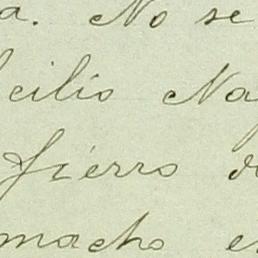 a. No se
cilio Na
fierro d
macho e